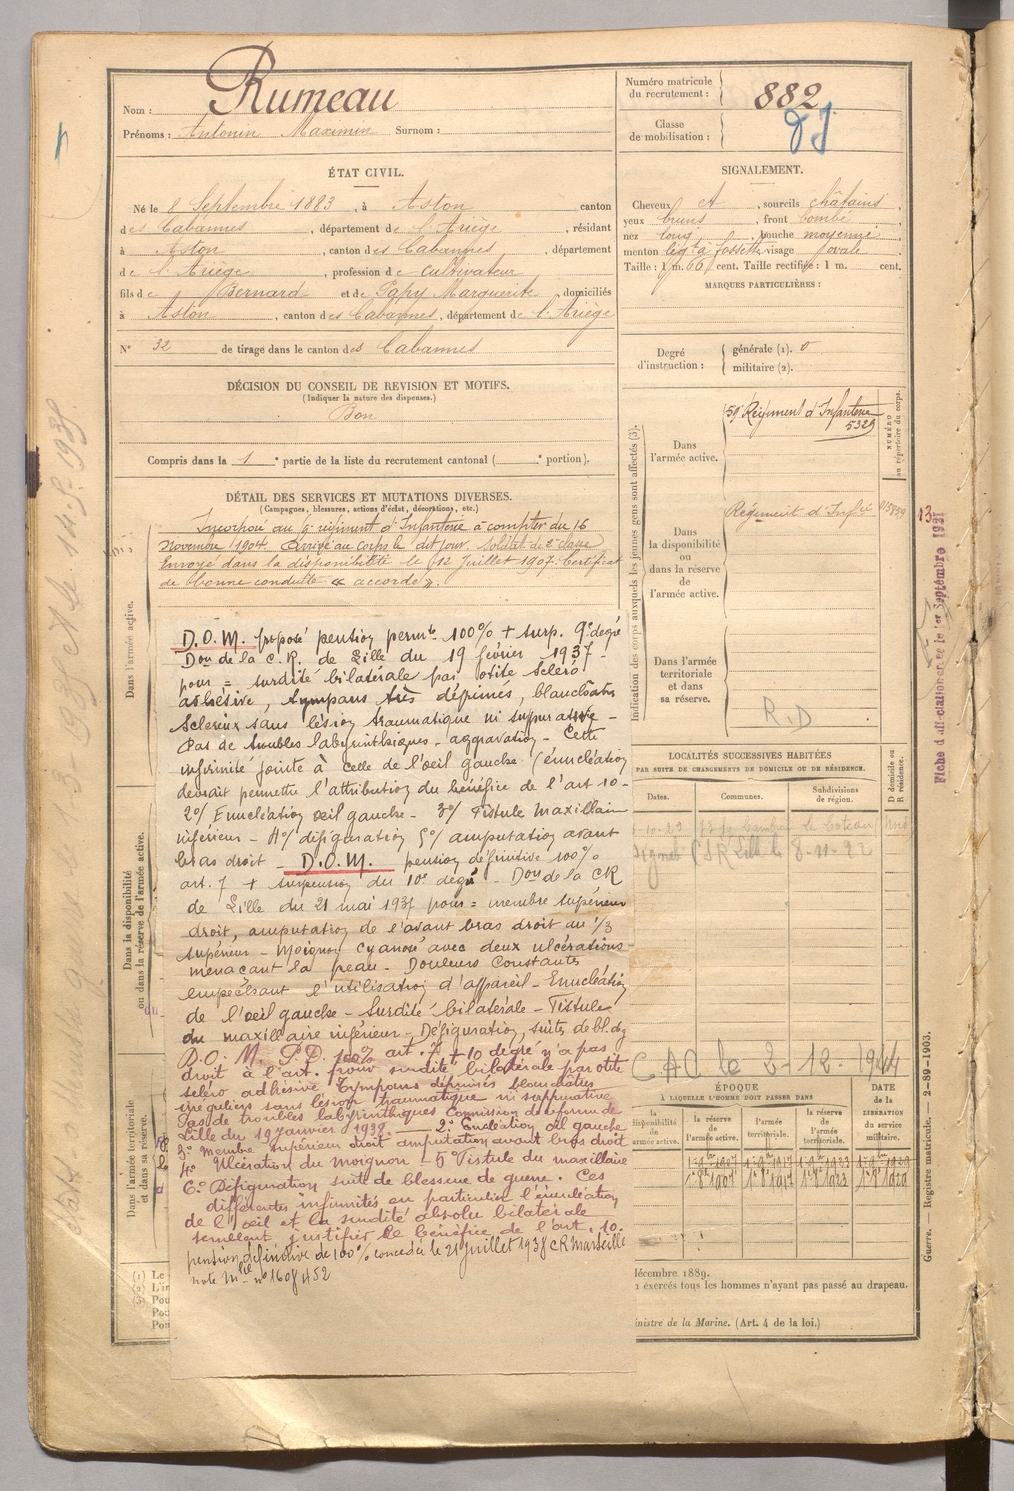 Nom : Rumeau
Prénoms : Antonin Maximin Surnom :
Numéro matricule du recrutement : 882
Classe de mobilisation :
ÉTAT CIVIL.
Né le 8 Septembre 1883, à Aston canton
des Cabannes, département de l'Ariège, résidant
à Aston, canton des Cabannes, département
de l'Ariège, profession de cultivateur
fils de Bernard et de Papy Marguerite, domiciliés
à Aston, canton des Cabannes, département de l'Ariège
N° 32 de tirage dans le canton des Cabannes
SIGNALEMENT.
Cheveux et, sourcils châtains,
yeux bruns, front bombé
nez long, bouche moyenne,
menton légt à fossette visage ovale.
Taille : 1 m. 66 cent. Taille rectifiée : 1 m. cent.
MARQUES PARTICULIÈRES :
Degré d'instruction : générale (1). 0
militaire (2).
DÉCISION DU CONSEIL DE REVISION ET MOTIFS.
(Indiquer la nature des dispenses.)
Bon
Compris dans la 1e partie de la liste du recrutement cantonal ( e portion).
DÉTAIL DES SERVICES ET MUTATIONS DIVERSES.
(Campagnes, blessures, actions d'éclat, décorations, etc.)
Incorporé au 9e régiment d'Infanterie à compter du 16
Novembre 1904. Arrivé au corps le dit jour, soldat de 2e classe
Envoyé dans la disponibilité le 12 Juillet 1907. Certificat
de bonne conduite « accordé ».
D.O.M. proposé pension permte 100% + surp. 9e degré
Don de la C.R. de Lille du 19 février 1937 -
pour = surdité bilatérale par otite scléro
adhésive, tympans très déprimés, blanchâtres
scléreux sans lésion traumatique ni suppurative -
Pas de troubles labyrinthiques - aggravation - Cette
infirmité jointe à celle de l'œil gauche (énucléation
devrait permettre l'attribution du bénéfice de l'art 10 -
2°/ Enucléation œil gauche - 3°/ Fistule maxillaire
inférieur - 4°/ défiguration 5°/ amputation avant
bras droit - D.O.M. pension définitive 100%
art. 7 + suspension du 10e degré - Don de la CR
de Lille du 21 mai 1937 pour = membre supérieur
droit, amputation de l'avant bras droit au 1/3
supérieur - Moignon cyanosé avec deux ulcérations
menaçant la peau - Douleurs constantes
empêchant l'utilisation d'appareil - Enucléation
de l'œil gauche - Surdité bilatérale - Fistule
du maxillaire inférieur - Défiguration, suites de bl. de g
D.O. M. P.D. 100% art. 7 + 10 degré n'a pas
droit à l'art. pour surdité bilatérale par otite
scléro adhésive tympans déprimés blanchâtres
irréguliers sans lésion traumatique ni suppurative
Pas de troubles labyrinthiques Commission de réforme de
Lille du 19 Janvier 1938. - 2° Enucléation œil gauche
3° membre supérieur droit amputation avant bras droit
4° Ulcération du moignon - 5° Fistule du maxillaire
6° Défiguration suite de blessure de guerre. Ces
différentes infirmités en particulier l'énucléation
de l'œil et la surdité absolue bilatérale
semblent justifier le bénéfice de l'art. 10.
pension définitive de 100% concédée le 21 juillet 1938 CR Marseille
note mlle n° 1608452
Indication des corps auxquels les jeunes gens sont affectés (3).
NUMÉRO au répertoire du corps.
Dans l'armée active.
59e Régiment d'Infanterie
5329
Dans la disponibilité ou dans la réserve de l'armée active.
Régiment d'Infie
Dans l'armée territoriale et dans sa réserve.
R.D
LOCALITÉS SUCCESSIVES HABITÉES
PAR SUITE DE CHANGEMENTS DE DOMICILE OU DE RÉSIDENCE.
Dates. Communes. Subdivisions de région. D domicile ou R résidence.
CAC le 2-12-1944
ÉPOQUE
À LAQUELLE L'HOMME DOIT PASSER DANS
DATE de la LIBÉRATION du service militaire.
la disponibilité de l'armée active. la réserve de l'armée active. l'armée territoriale. la réserve de l'armée territoriale.
1er 9bre 1907 1er 9bre 1917 1er 9bre 1923 1er 9bre 1929
1er 8bre 1907 1er 8bre 1917 1er 8bre 1923 1er 8bre 1929
décembre 1889.
n exercés tous les hommes n'ayant pas passé au drapeau.
inistre de la Marine. (Art. 4 de la loi.)
Dans l'armée active.
Dans la disponibilité ou dans la réserve de l'armée active.
Dans l'armée territoriale et dans sa réserve.
(1) Le
(2) L'in
(3) Pou
Pou
Pon
Guerre. — Registre matricule. — 2-89-1903.